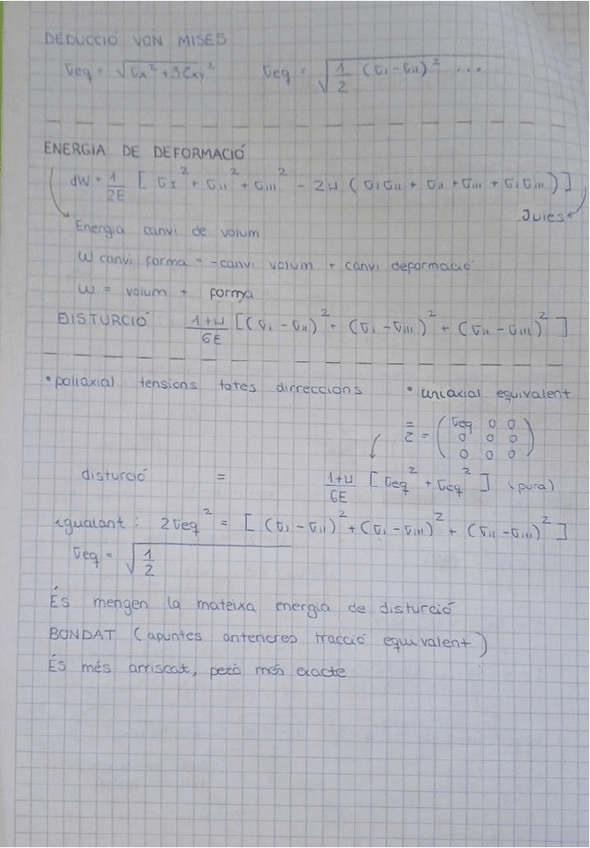 DEDUCCIÓ VON MISES
σeq = √σx² + 3τxy² σeq = √1/2 (σI - σII)² ...
ENERGIA DE DEFORMACIÓ
dW = 1/2E [σI² + σII² + σIII² - 2μ (σIσII + σII + σIII + σIσIII)]
Juies
Energia canvi de volum
W canvi forma = -canvi volum + canvi deformació
W = volum + forma
DISTURCIÓ: 1+μ/6E [(σI - σII)² + (σI - σIII)² + (σII - σIII)²]
• poliaxial tensions totes dirreccions • uniaxial equivalent
τ = (σeq 0 0
0 0 0
0 0 0)
disturció = 1+μ/6E [σeq² + σeq²] (pura)
igualant: 2σeq² = [(σI - σII)² + (σI - σIII)² + (σII - σIII)²]
σeq = √1/2
És mengen la mateixa energia de disturció
BONDAT (apuntes anteriores tracció equivalent)
És més arriscat, però més exacte